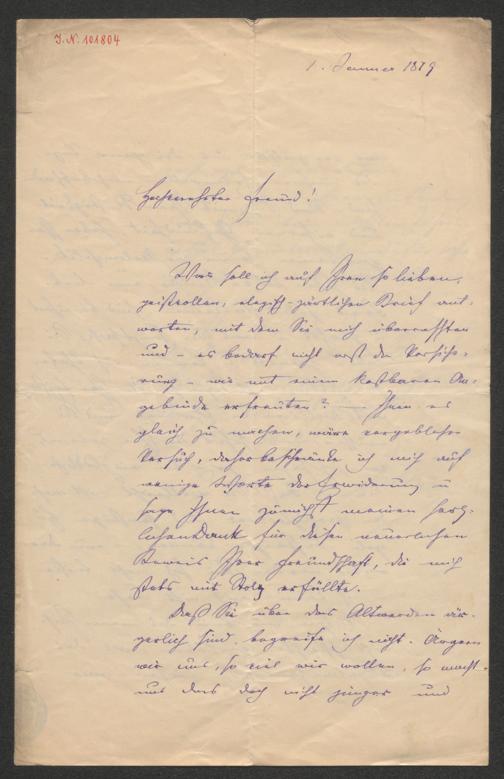 J.N. 101804
1. Jänner 1879
Hochverehrter Freund!
Was soll ich auf Ihren so lieben,
geistvollen, elegisch-zärtlichen Brief ant-
worten, mit dem Sie mich überraschten
und – es bedarf nicht erst der Versiche-
rung – wie mit einem kostbaren An-
gebinde erfreuten? — Ihnen es
gleich zu machen, wäre vergeblicher
Versuch, daher beschränke ich mich auf
wenige Worte der Erwiderung u
sage Ihnen zunächst meinen herz-
lichen Dank für diesen neuerlichen
Beweis Ihrer Freundschaft, die mich
stets mit Stolz erfüllte.
Daß Sie über das Altwerden är-
gerlich sind, begreife ich nicht. Ärgern
wir uns, so viel wir wollen, so macht
uns das doch nicht jünger und